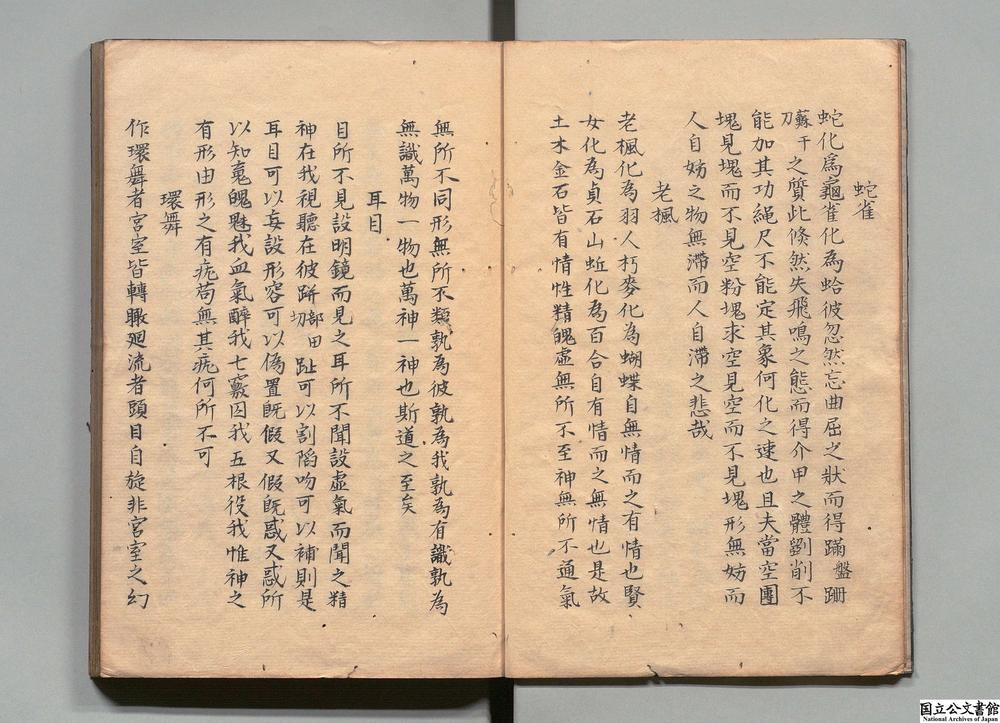 蛇雀
蛇化爲龜雀化為蛤彼忽然忘曲屈之狀而得蹣盤跚
蘇干之質此倏然失飛鳴之態而得介甲之體劉削不
能加其功繩尺不能定其象何化之速也且夫當空團
塊見塊而不見空粉塊求空見空而不見塊形無妨而
人自妨之物無滯而人自滯之悲哉
老楓
老楓化為羽人朽麥化為蝴蝶自無情而之有情也賢
女化為貞石山蚯化為百合自有情而之無情也是故
土木金石皆有情性精魄虛無所不至神無所不通氣
無所不同形無所不類孰為彼孰為我孰為有識孰為
無識萬物一物也萬神一神也斯道之至矣
耳目
目所不見設明鏡而見之耳所不聞設虛氣而聞之精
神在我視聽在彼跰部田切趾可以割陷吻可以補則是
耳目可以妄設形容可以偽置既假又假既惑又惑所
以知䰟魄魅我血氣醉我七竅囚我五根役我惟神之
有形由形之有疣苟無其疣何所不可
環舞
作環舞者宮室皆轉瞰廻流者頭目自旋非宮室之幻
国立公文書館
National Archives of Japan